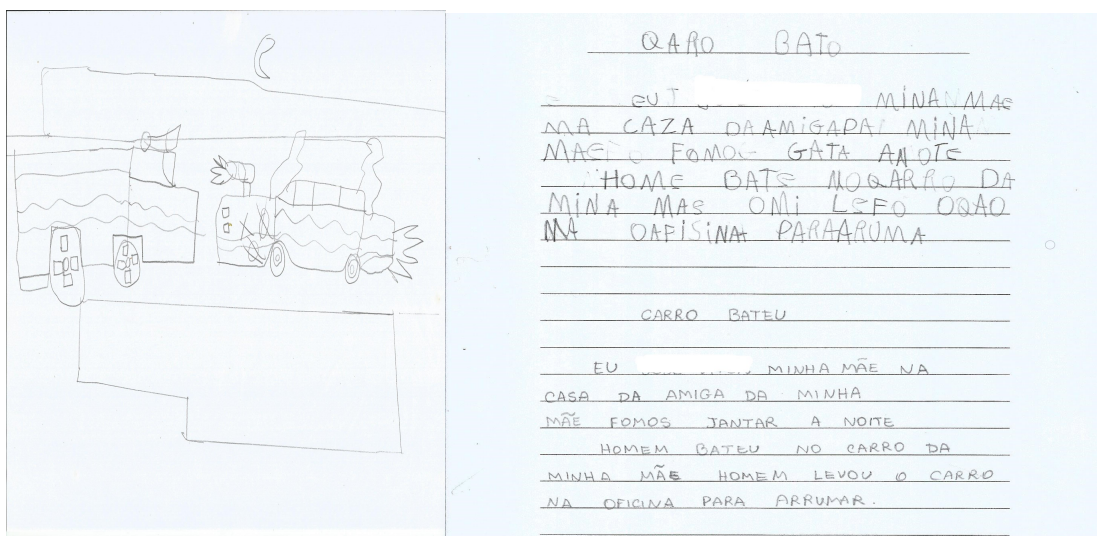 QARO BATO
EU MINA MAE
MA CAZA DAAMIGAPA MINA
MAE FOMOS GATA ANOTE
HOME BATE NOQARRO DA
MINA MAS OMI LEFO OQAO
NA OAFISINA PARAARUMA
CARRO BATEU
EU MINHA MÃE NA
CASA DA AMIGA DA MINHA
MÃE FOMOS JANTAR A NOITE
HOMEM BATEU NO CARRO DA
MINHA MÃE HOMEM LEVOU O CARRO
NA OFICINA PARA ARRUMAR.